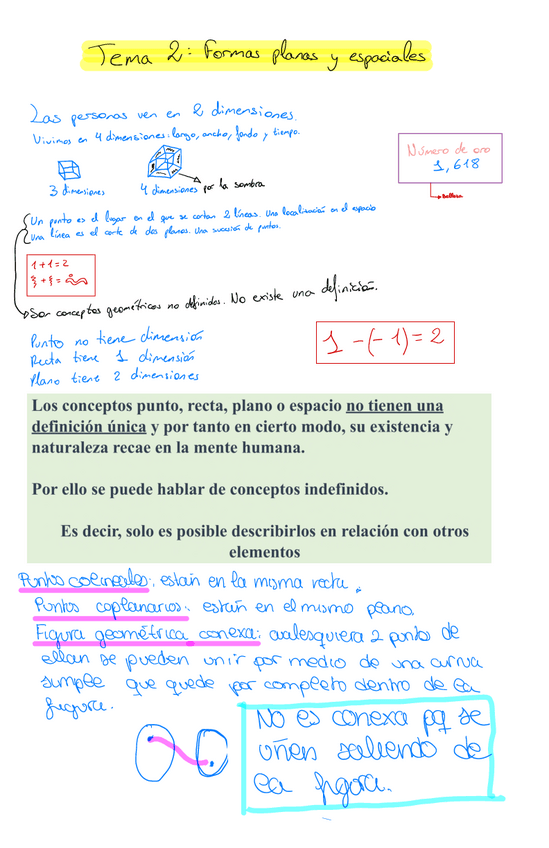 Tema 2: Formas planas y espaciales
Las personas ven en 2 dimensiones.
Vivimos en 4 dimensiones: largo, ancho, fondo y tiempo.
Número de oro
1,618
Belleza
3 dimensiones
4 dimensiones por la sombra
Un punto es el lugar en el que se cortan 2 líneas. Una localización en el espacio
Una línea es el corte de dos planos. Una sucesión de puntos.
1+1=2
Son conceptos geométricos no definidos. No existe una definición.
Punto no tiene dimensión
Recta tiene 1 dimensión
Plano tiene 2 dimensiones
1 -(- 1) = 2
Los conceptos punto, recta, plano o espacio no tienen una
definición única y por tanto en cierto modo, su existencia y
naturaleza recae en la mente humana.
Por ello se puede hablar de conceptos indefinidos.
Es decir, solo es posible describirlos en relación con otros
elementos
Puntos colineales: están en la misma recta.
Puntos coplanarios: están en el mismo plano.
Figura geométrica conexa: cualesquiera 2 puntos de
ellan se pueden unir por medio de una curva
simple que quede por completo dentro de la
figura.
No es conexa pq se
uñen saliendo de
la figura.